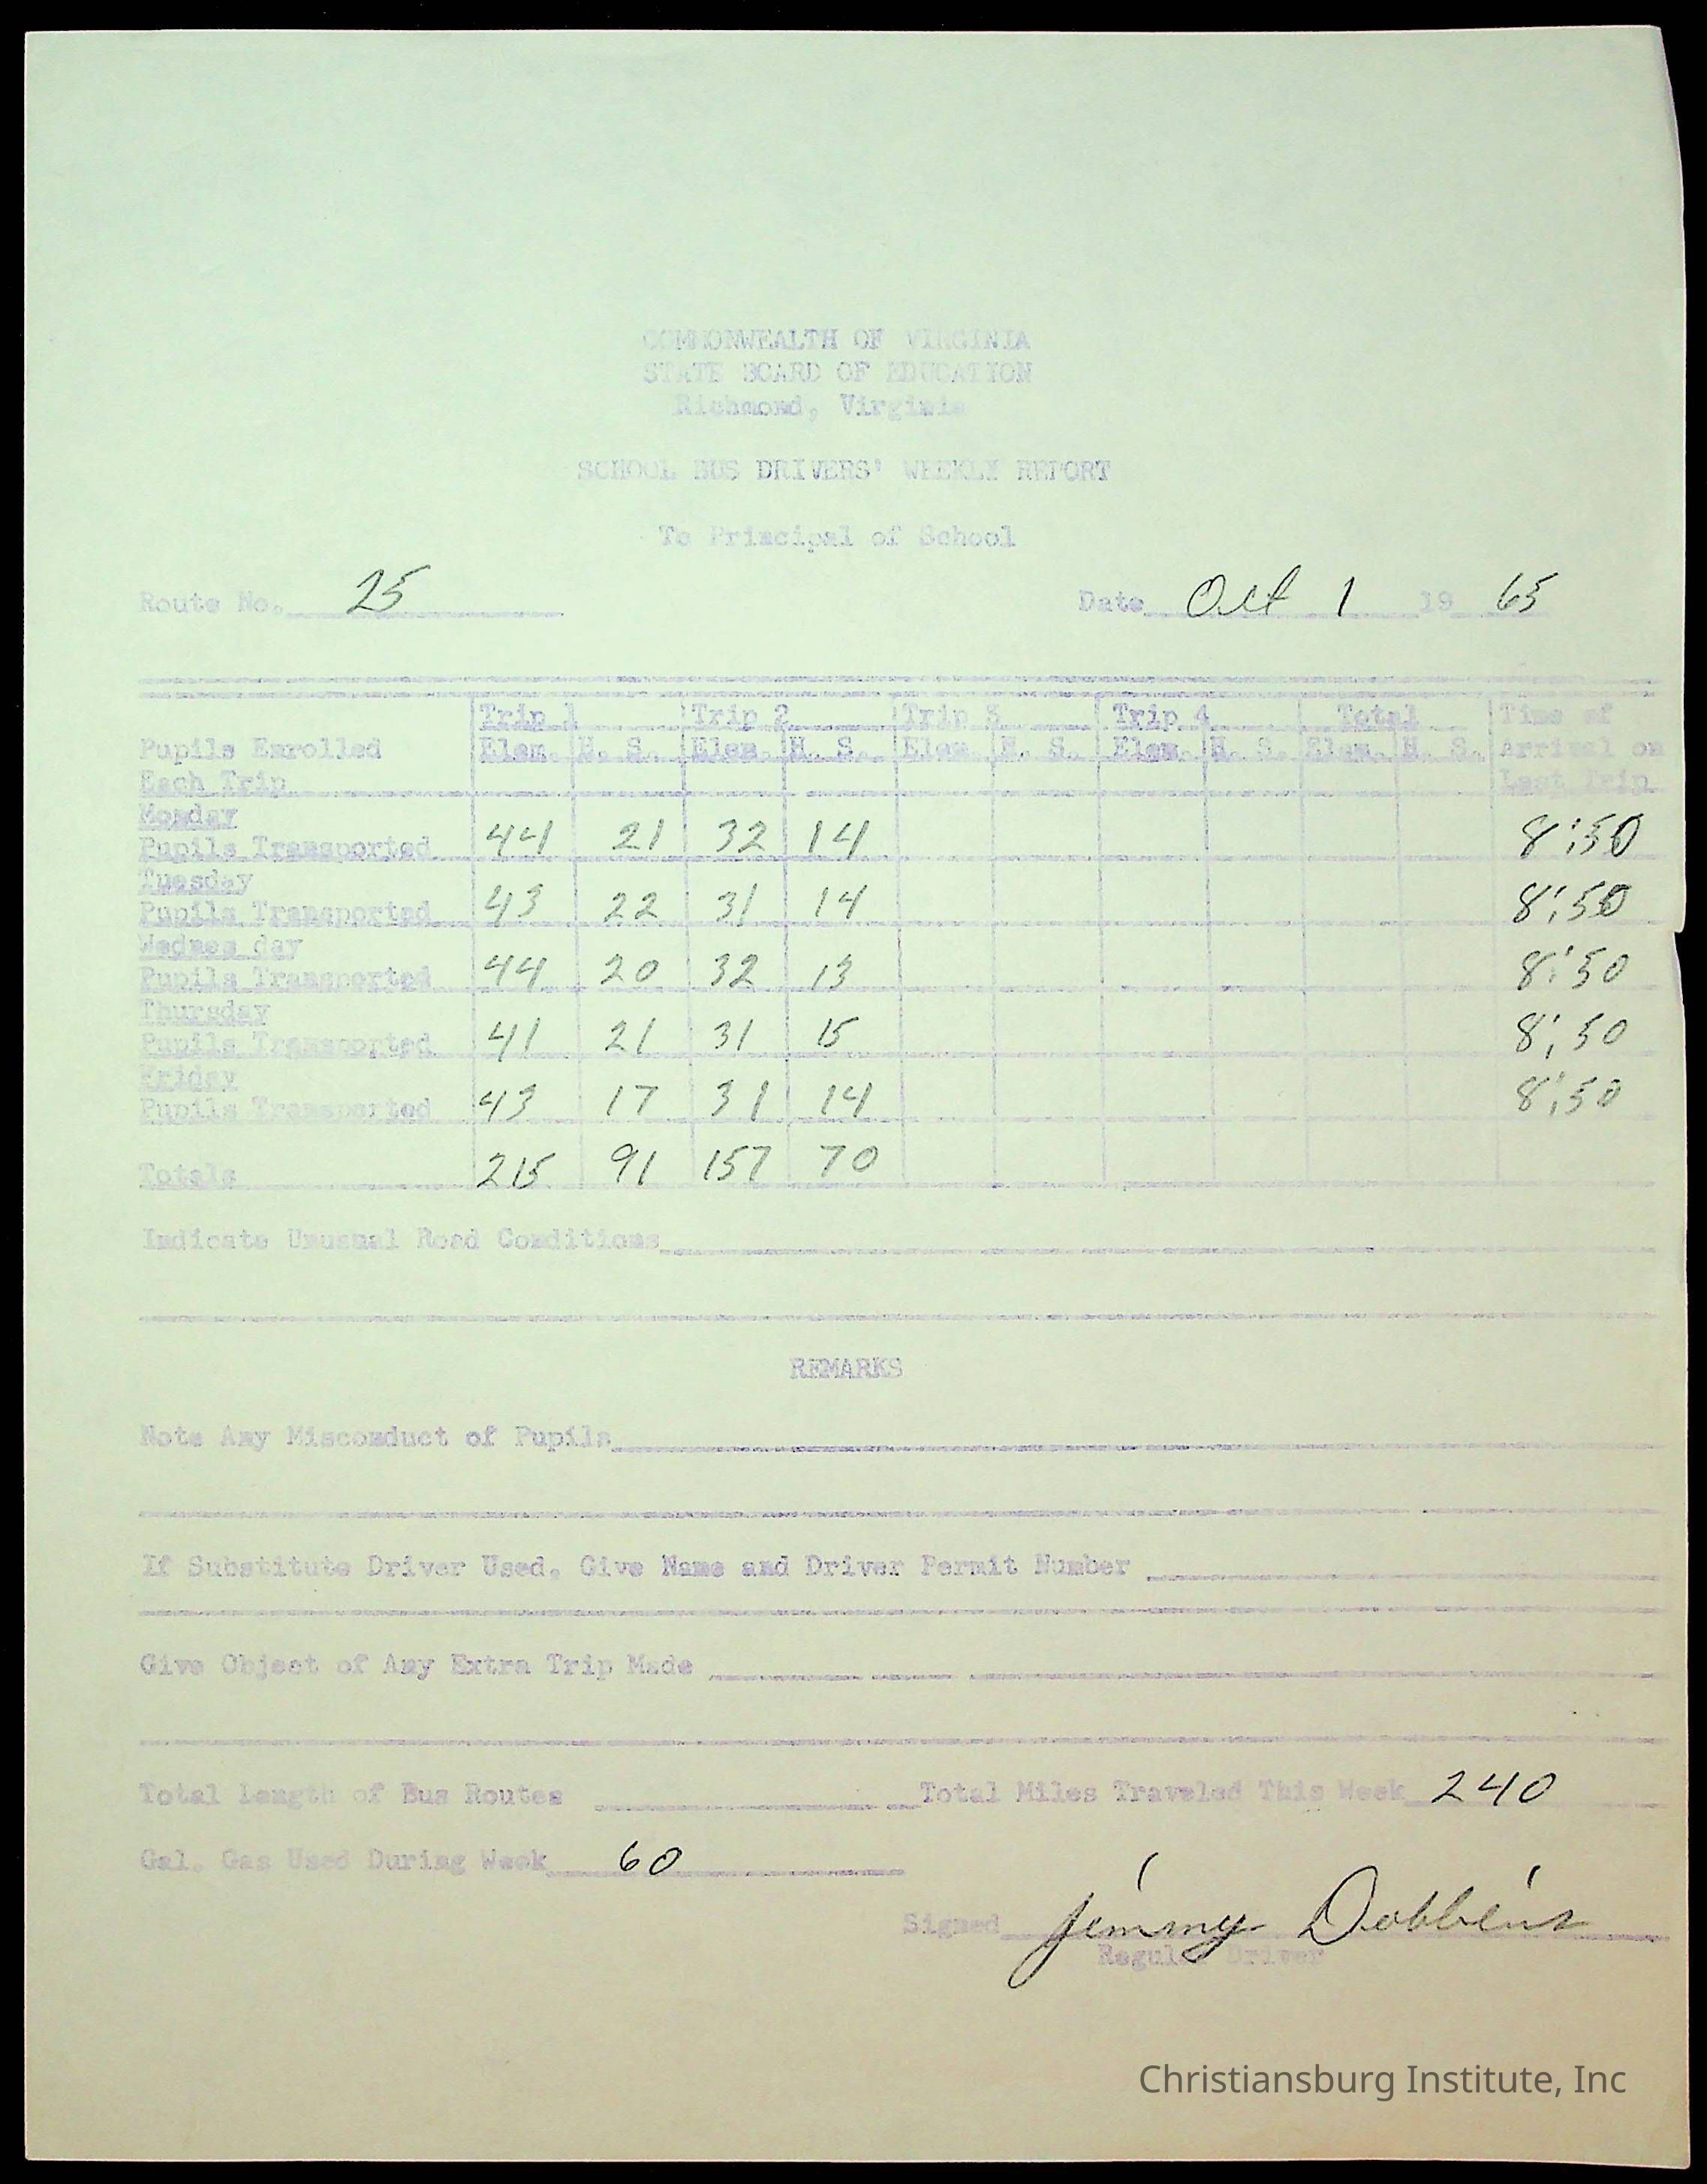 COMMONWEALTH OF VIRGINIA
STATE BOARD OF EDUCATION
Richmond, Virginia
SCHOOL BUS DRIVERS' WEEKLY REPORT
To Principal of School
Route No. 25 Date Oct 1 19 65
Trip 1 Trip 2 Trip 3 Trip 4 Total Time of
Pupils Enrolled Elem. H. S. Elem. H. S. Elem. H. S. Elem. H. S. Elem. H. S. Arrival on
Each Trip Last Trip
Monday
Pupils Transported 44 21 32 14 8:50
Tuesday
Pupils Transported 43 22 31 14 8:50
Wednes day
Pupils Transported 44 20 32 13 8:50
Thursday
Pupils Transported 41 21 31 15 8:50
Friday
Pupils Transported 43 17 31 14 8:50
Totals 215 91 157 70
Indicate Unusual Road Conditions
REMARKS
Note Any Misconduct of Pupils
If Substitute Driver Used, Give Name and Driver Permit Number
Give Object of Any Extra Trip Made
Total Length of Bus Routes Total Miles Traveled This Week 240
Gal. Gas Used During Week 60
Signed Jimmy Dobbins
Regular Driver
Christiansburg Institute, Inc